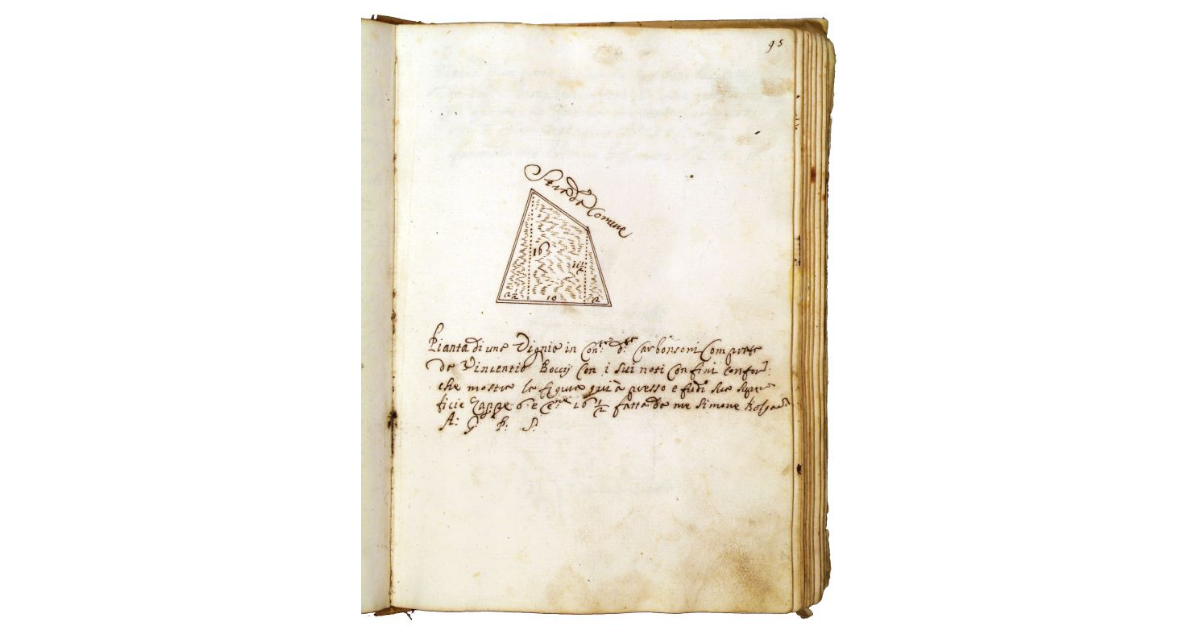 95
Strada Comune
163
10
Pianta di una Vignia in Con.ta d.ta Carbonsori Comprata
da Vincentio Boccij Con i suoi noti Confini confor
che mostra la figura qui apresso e fuori sua super
ficie Zappe 6 e Cen.e 16 1/2 fatta da me Simone
A: P: S: